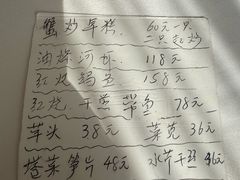 蟹炒年糕 60元一只
二只起炒
油爆河虾 118元
红烧鲳鱼 158元
红烧、干煎带鱼 78元
芋头 38元 菜苋 36元
塔菜笋片 48元 水芹干丝 46元